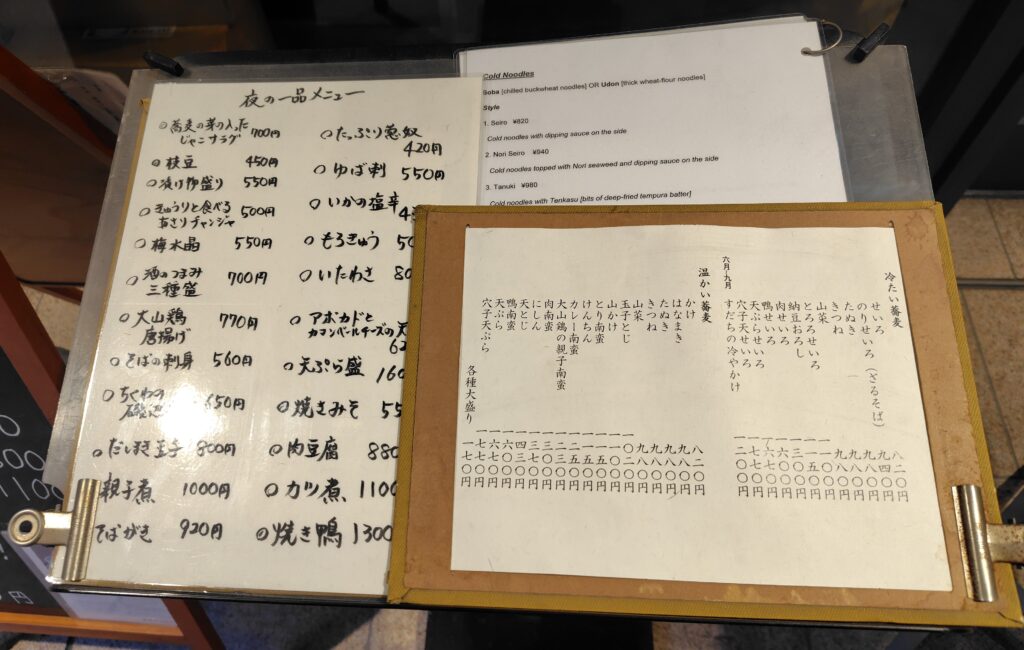 夜の一品メニュー
◎蕎麦の芽の入った
じゃこサラダ 700円
○枝豆 450円
○漬け物盛り 550円
○きゅうりと食べる
あさりチャンジャ 500円
○梅水晶 550円
○酒のつまみ
三種盛 700円
○大山鶏
唐揚げ 770円
○そばの刺身 560円
○ちくわの
650円
○だしまき玉子 800円
親子煮 1000円
そばがき 920円
○たっぷり葱奴
420円
○ゆば刺 550円
○いかの塩辛
○もろきゅう
○いたわさ
○アボカドと
カマンベールチーズの天
○天ぷら盛
○焼きみそ
○肉豆腐 880
○カツ煮 1100
◎焼き鴨 1300
Cold Noodles
Soba [chilled buckwheat noodles] OR Udon [thick wheat-flour noodles]
Style
1. Seiro ¥820
Cold noodles with dipping sauce on the side
2. Nori Seiro ¥940
Cold noodles topped with Nori seaweed and dipping sauce on the side
3. Tanuki ¥980
Cold noodles with Tenkasu [bits of deep-fried tempura batter]
冷たい蕎麦
せいろ 八二〇円
のりせいろ（ざるそば） 九四〇円
たぬき 九八〇円
きつね 九八〇円
山菜 九八〇円
とろろせいろ
納豆おろし
肉せいろ
鴨せいろ
天ぷらせいろ
穴子天せいろ
すだちの冷やかけ
六月-九月
温かい蕎麦
かけ 八二〇円
はなまき 九八〇円
たぬき 九八〇円
きつね 九八〇円
山菜 九八〇円
玉子とじ
山かけ
とり南蛮
けんちん
カレー南蛮
大山鶏の親子南蛮
肉南蛮
にしん
天とじ
鴨南蛮
天ぷら
穴子天ぷら
各種大盛り